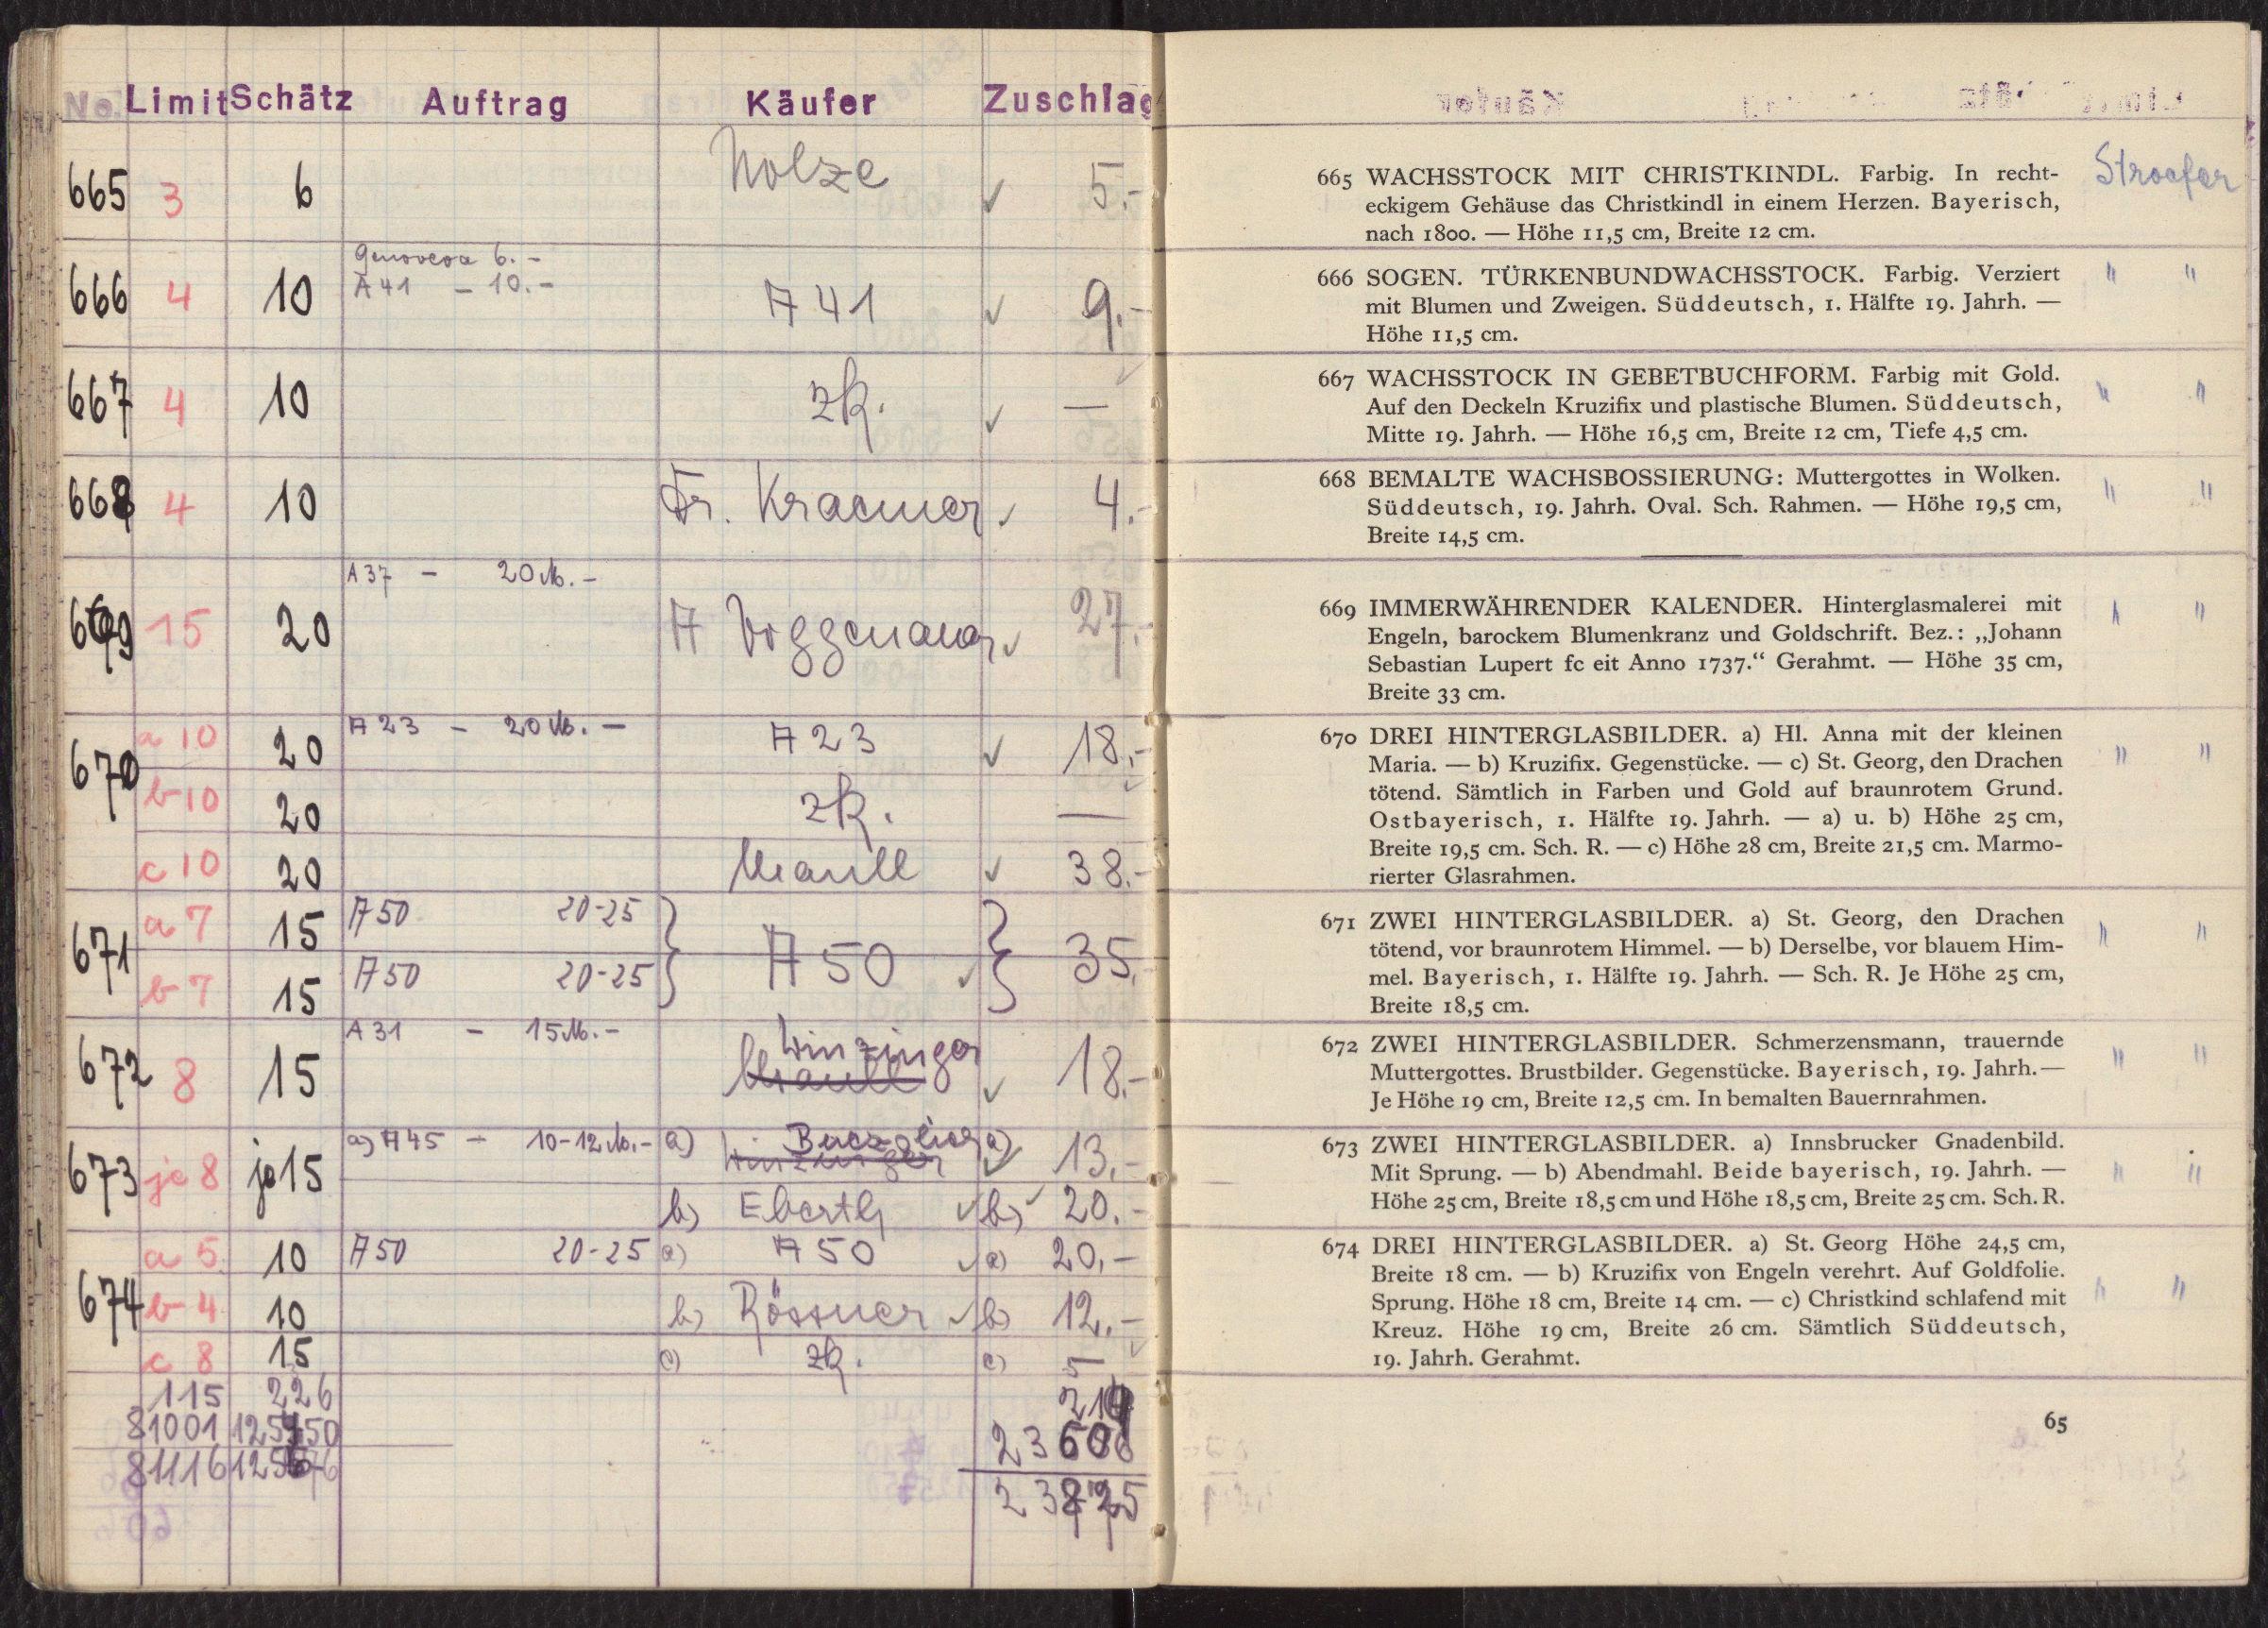 No. Limit Schätz Auftrag Käufer Zuschlag
665 3 6 Nolze ✓ 5.-
Genoveva 6.-
666 4 10 A 41 - 10.- A 41 ✓ 9.-
667 4 10 zk. ✓ —
668 4 10 Fr. Kraemer ✓ 4.-
A 37 - 20 M.-
669 15 20 A ✓ 27.-
670 a 10 20 A 23 - 20 M.- A 23 ✓ 18.-
b 10 20 zk. —
c 10 20 ✓ 38.-
671 a 7 15 A 50 20-25 } A 50 ✓ } 35.
b 7 15 A 50 20-25
A 31 - 15 M.- Winzinger
672 8 15 ✓ 18.-
673 je 8 je 15 a) A 45 - 10-12 M.- a) a) ✓ 13.-
Winzinger
b) Ebertz ✓ b) ✓ 20.-
674 a 5 10 A 50 20-25 a) A 50 ✓ a) 20.-
b 4 10 b) Rössner ✓ b) 12.-
c 8 15 c) zk. c) 5
115 226
81001
81116
665 WACHSSTOCK MIT CHRISTKINDL. Farbig. In recht- Stroefer
eckigem Gehäuse das Christkindl in einem Herzen. Bayerisch,
nach 1800. — Höhe 11,5 cm, Breite 12 cm.
666 SOGEN. TÜRKENBUNDWACHSSTOCK. Farbig. Verziert " "
mit Blumen und Zweigen. Süddeutsch, 1. Hälfte 19. Jahrh. —
Höhe 11,5 cm.
667 WACHSSTOCK IN GEBETBUCHFORM. Farbig mit Gold. " "
Auf den Deckeln Kruzifix und plastische Blumen. Süddeutsch,
Mitte 19. Jahrh. — Höhe 16,5 cm, Breite 12 cm, Tiefe 4,5 cm.
668 BEMALTE WACHSBOSSIERUNG: Muttergottes in Wolken. " "
Süddeutsch, 19. Jahrh. Oval. Sch. Rahmen. — Höhe 19,5 cm,
Breite 14,5 cm.
669 IMMERWÄHRENDER KALENDER. Hinterglasmalerei mit " "
Engeln, barockem Blumenkranz und Goldschrift. Bez.: „Johann
Sebastian Lupert fc eit Anno 1737.“ Gerahmt. — Höhe 35 cm,
Breite 33 cm.
670 DREI HINTERGLASBILDER. a) Hl. Anna mit der kleinen " "
Maria. — b) Kruzifix. Gegenstücke. — c) St. Georg, den Drachen
tötend. Sämtlich in Farben und Gold auf braunrotem Grund.
Ostbayerisch, 1. Hälfte 19. Jahrh. — a) u. b) Höhe 25 cm,
Breite 19,5 cm. Sch. R. — c) Höhe 28 cm, Breite 21,5 cm. Marmo-
rierter Glasrahmen.
671 ZWEI HINTERGLASBILDER. a) St. Georg, den Drachen " "
tötend, vor braunrotem Himmel. — b) Derselbe, vor blauem Him-
mel. Bayerisch, 1. Hälfte 19. Jahrh. — Sch. R. Je Höhe 25 cm,
Breite 18,5 cm.
672 ZWEI HINTERGLASBILDER. Schmerzensmann, trauernde " "
Muttergottes. Brustbilder. Gegenstücke. Bayerisch, 19. Jahrh. —
Je Höhe 19 cm, Breite 12,5 cm. In bemalten Bauernrahmen.
673 ZWEI HINTERGLASBILDER. a) Innsbrucker Gnadenbild. " "
Mit Sprung. — b) Abendmahl. Beide bayerisch, 19. Jahrh. —
Höhe 25 cm, Breite 18,5 cm und Höhe 18,5 cm, Breite 25 cm. Sch. R.
674 DREI HINTERGLASBILDER. a) St. Georg Höhe 24,5 cm, " "
Breite 18 cm. — b) Kruzifix von Engeln verehrt. Auf Goldfolie.
Sprung. Höhe 18 cm, Breite 14 cm. — c) Christkind schlafend mit
Kreuz. Höhe 19 cm, Breite 26 cm. Sämtlich Süddeutsch,
19. Jahrh. Gerahmt.
65